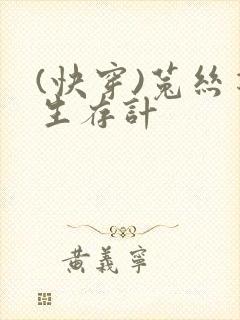 (快穿)菟絲
生存計
黃義寧